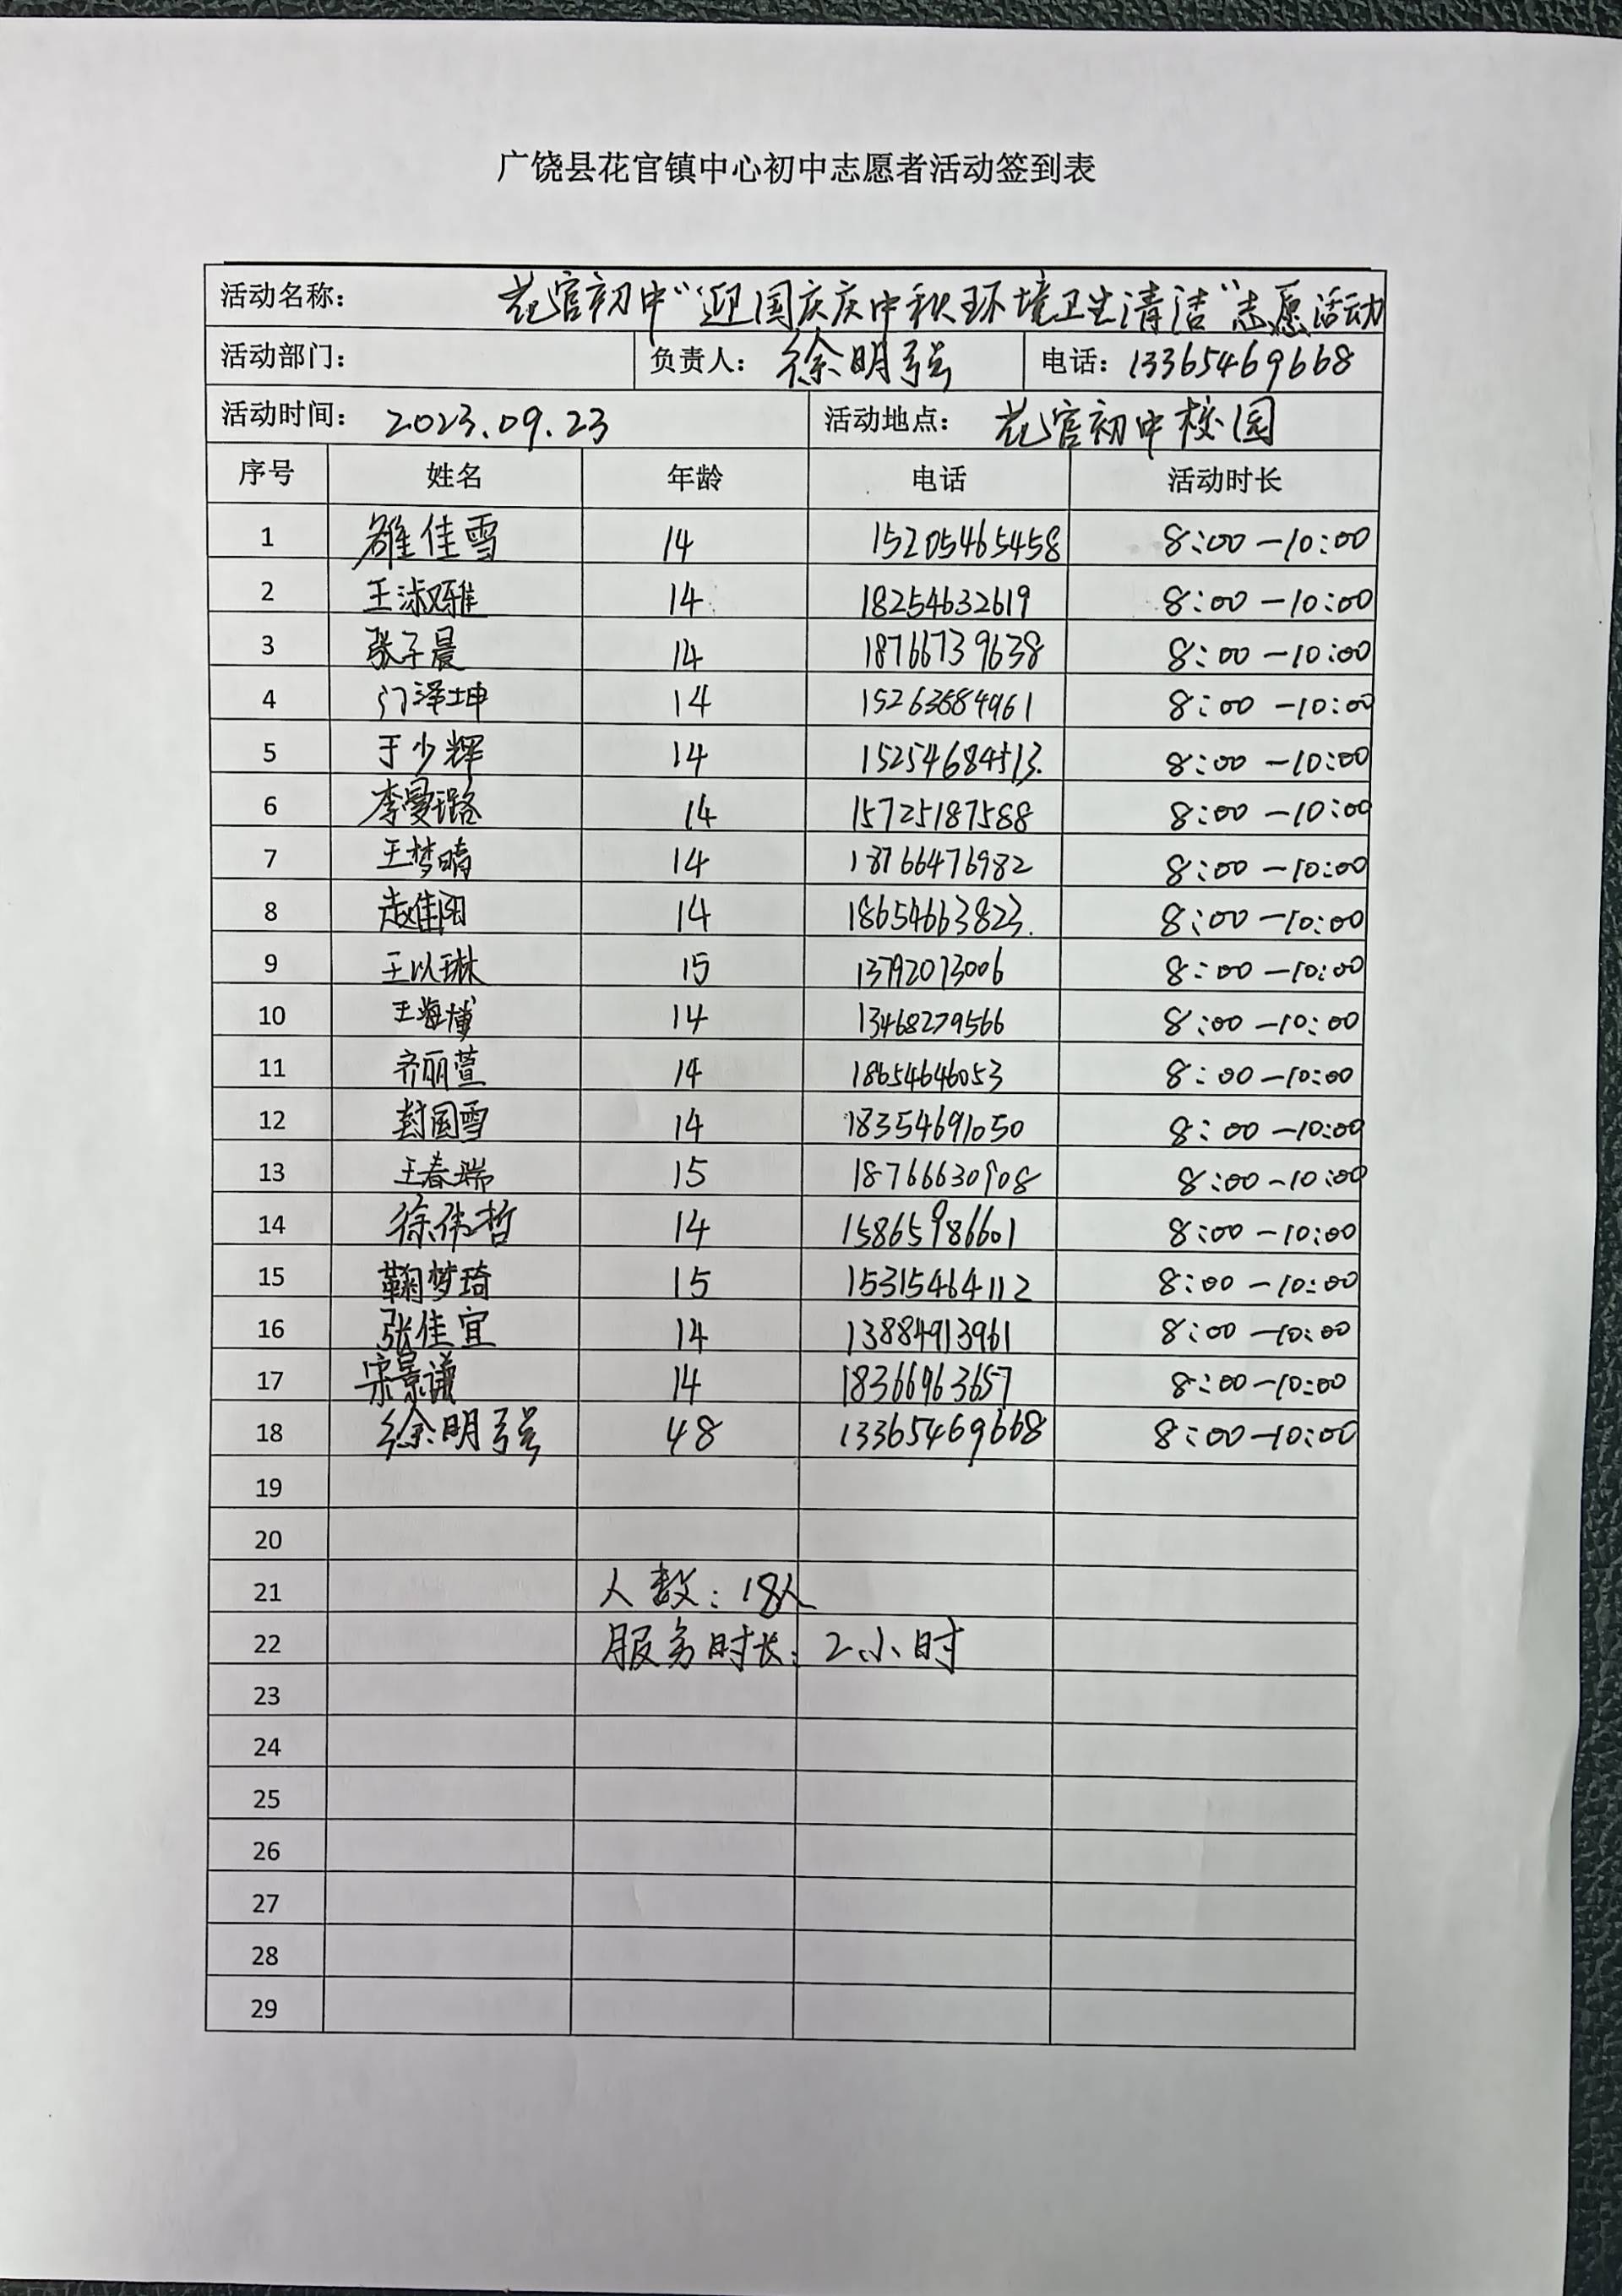 广饶县花官镇中心初中志愿者活动签到表
活动名称： 花官初中“迎国庆庆中秋环境卫生清洁”志愿活动
活动部门： 负责人： 徐明强 电话：13365469668
活动时间： 2023.09.23 活动地点： 花官初中校园
序号 姓名 年龄 电话 活动时长
1 雒佳雪 14 15205465458 8:00-10:00
2 王淑雅 14 18254632619 8:00-10:00
3 张子晨 14 18766739638 8:00-10:00
4 门泽坤 14 15263884961 8:00-10:00
5 于少辉 14 15254684513. 8:00-10:00
6 李曼璐 14 15725187588 8:00-10:00
7 王梦晴 14 18766476982 8:00-10:00
8 赵佳阳 14 18654663823. 8:00-10:00
9 王以琳 15 13792073006 8:00-10:00
10 王海博 14 13468279566 8:00-10:00
11 齐丽萱 14 18654646053 8:00-10:00
12 封国雪 14 18354691050 8:00-10:00
13 王春端 15 18766630908 8:00-10:00
14 徐伟哲 14 15865986601 8:00-10:00
15 鞠梦琦 15 15315464112 8:00-10:00
16 张佳宜 14 13884913961 8:00-10:00
17 宋景谦 14 18366963657 8:00-10:00
18 徐明强 48 13365469668 8:00-10:00
19
20
21 人数：18人
22 服务时长：2小时
23
24
25
26
27
28
29